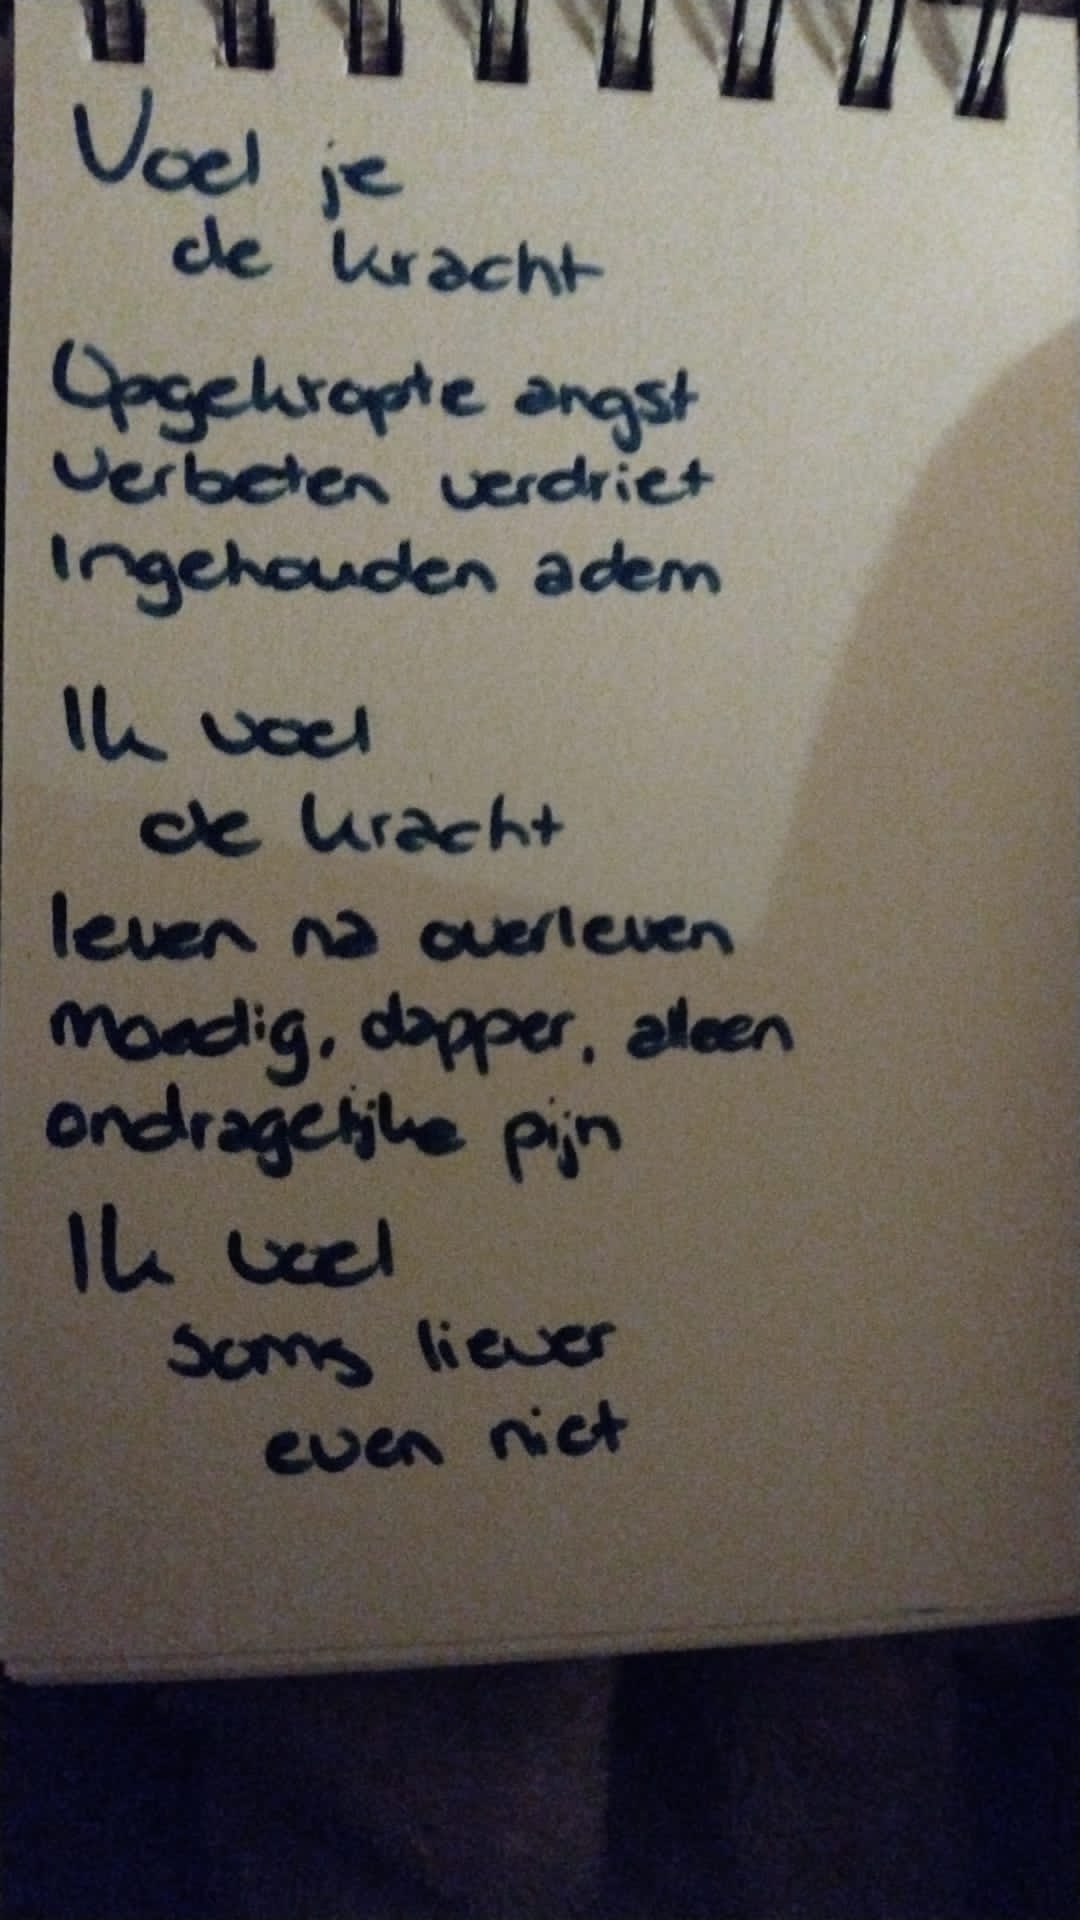 Voel je
de kracht
Opgekropte angst
Verbeten verdriet
Ingehouden adem
Ik voel
de kracht
leven na overleven
moedig, dapper, alleen
ondragelijke pijn
Ik voel
soms liever
even niet